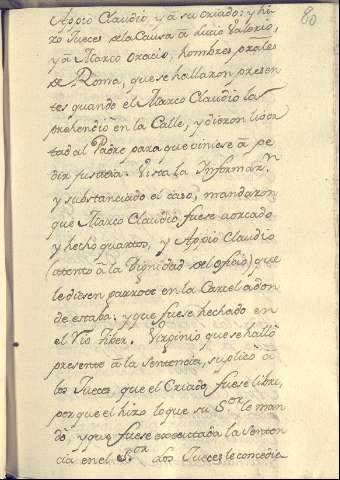 80
Appio Claudio, y â su criado; y hi-
zo Jueces de la Causa â Lucio Valerio,
y â Marco oracio, hombres prâles
de Roma, que se hallaron presen
tes quando el Marco Claudio las
prehendiò en la Calle, y dieron liver
tad al Padre para que viniese â pe
dir justicia. Vista la Informaz.n
y substanciado el caso, mandaron
que Marco Claudio, fuese aorcado
y hecho quartos, y Appio Claudio
(atento â la Dignidad del ofizio) que
le diesen garrote en la Carcel adon
de estaba; y que fuese hechado en
el Rio Tiber. Virginio que se hallô
presente â la sentencia, suplicô â
los Jueces, que el Criado fuese libre,
por que el hizo lo que su S.or le man
dô, y que fuese executada la senten
cia en el S.or â los Jueces le concedia